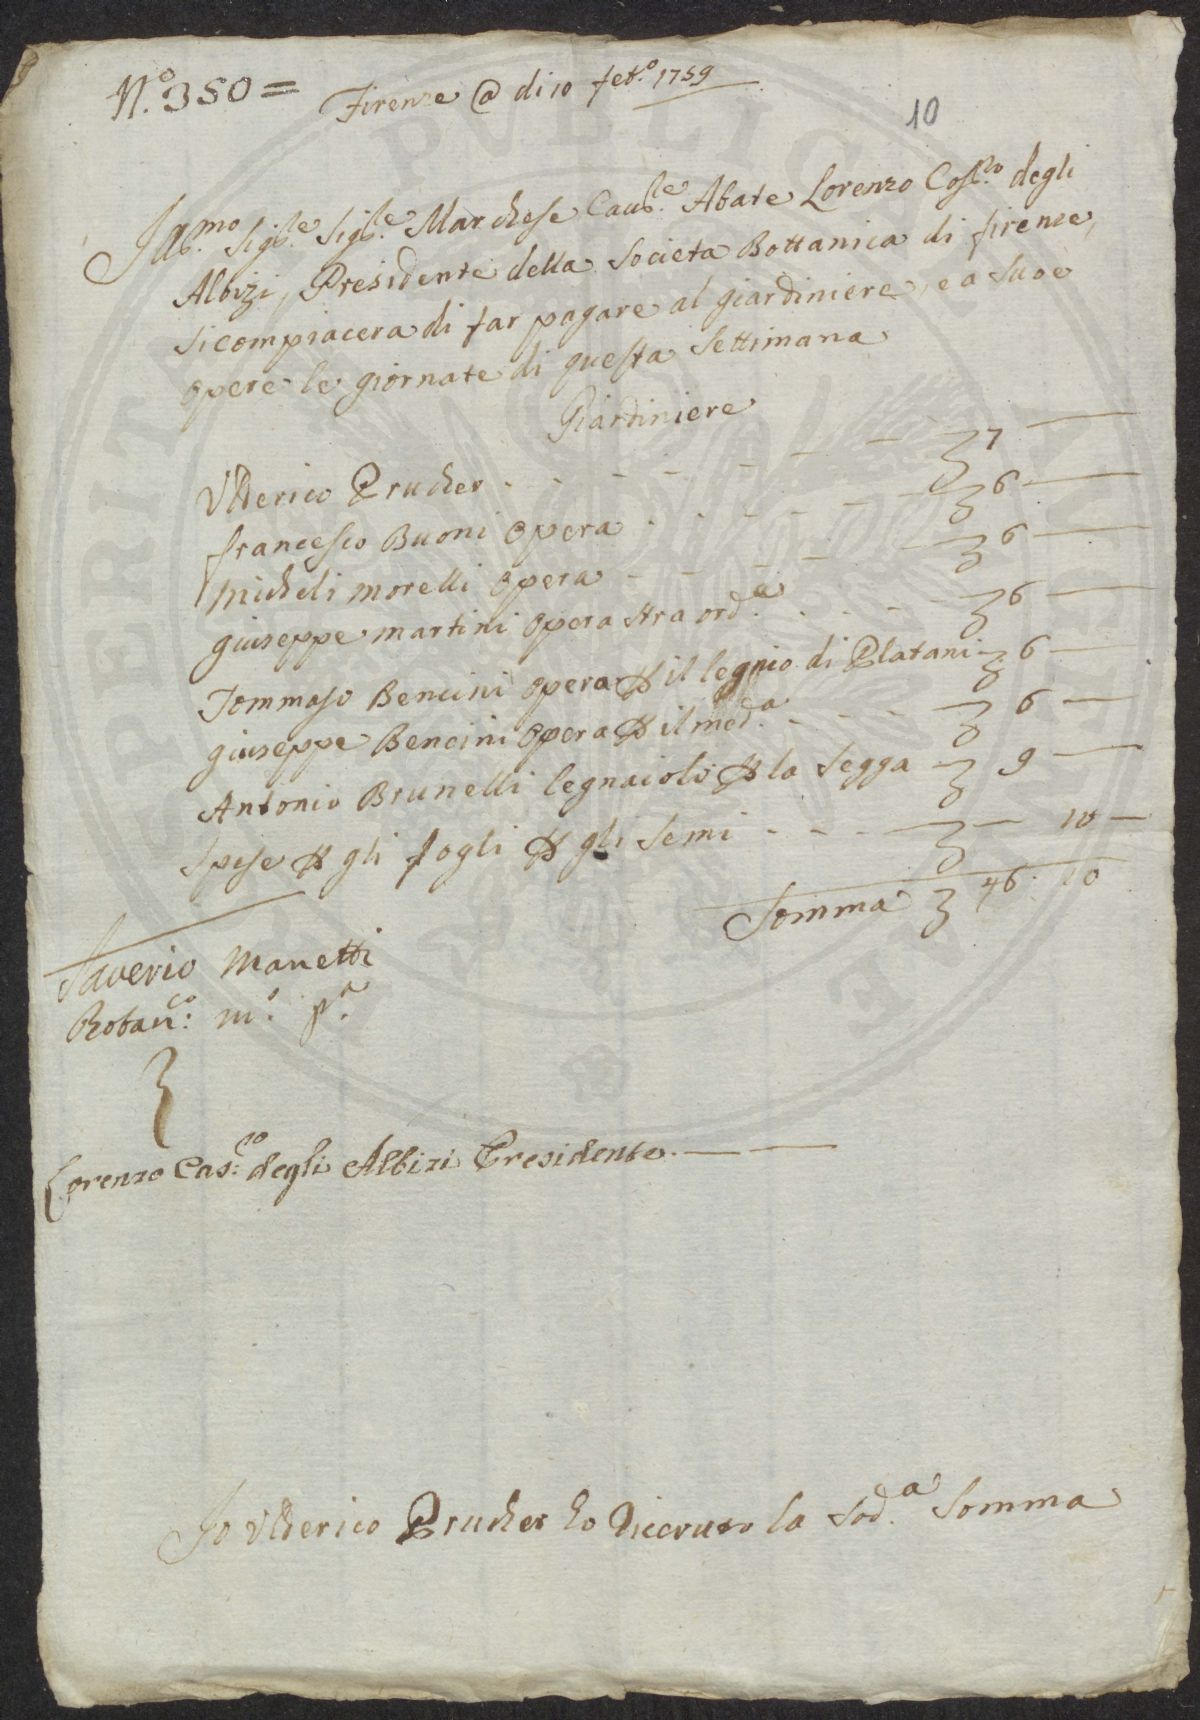 N.º 350 =
Firenze @ di 10 feb.º 1759
10
Ill.mo Sig.re Sig.re Marchese Cav.re Abate Lorenzo Cos.zo degli
Albizi, Presidente della Societa Bottanica di firenze,
si compiacera di far pagare al giardiniere, e a suoe
opere le giornate di questa Settimana
Giardiniere
Ulderico Prucher - - - - - - 7 —
francesco Buoni opera - - - - - 6 —
Micheli morelli opera - - - - - 6 —
giuseppe martini opera straord.a - - - - 6 —
Tommaso Bencini opera p il legnio di Platani - 6 —
giuseppe Bencini opera p il med.a - - - - 6 —
Antonio Brunelli legnaiolo p la segga - 9 —
Spese p gli fogli p gli semi - - - - — 10 —
Somma 46. 10
Saverio Manetti
Botan.co m.º p.a
Lorenzo Cas.co degli Albizi Presidente. — —
Io Ulderico Prucher ho Riceruto la Sod.a Somma
PVBLICAE